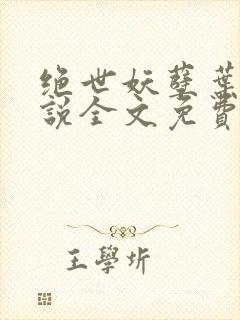 绝世妖孽葉
説全文免費
王學圻